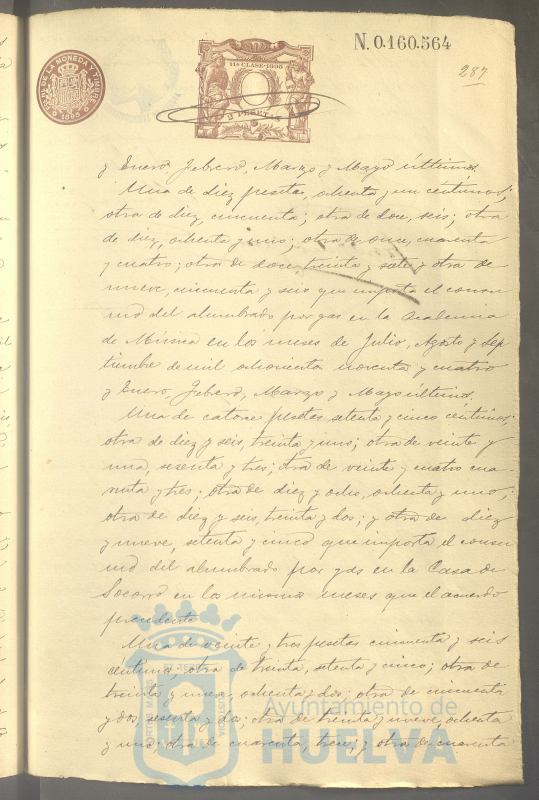 N. 0.160.564
287
FCA. DE LA MONEDA Y TIMBRE
1895
11ª CLASE-1895
2 PESETAS
y Enero Febrero, Marzo y Mayo últimos.
Una de diez pesetas, ochenta y un centimos;
otra de diez, cincuenta; otra de doce, seis; otra
de diez, ochenta y uno; otra de once, cuarenta
y cuatro; otra de doce, treinta y siete y otra de
nueve, cincuenta y seis que importa el consu
mo del alumbrado por gas en la Academia
de Música en los meses de Julio, Agosto y Sep
tiembre de mil ochocientos noventa y cuatro
y Enero, Febrero, Marzo y Mayo últimos.
Una de catorce pesetas, setenta y cinco centimos;
otra de diez y seis, treinta y uno; otra de veinte y
una, sesenta y tres; otra de veinte y cuatro cua-
renta y tres; otra de diez y ocho, ochenta y uno;
otra de diez y seis, treinta y dos; y otra de diez
y nueve, setenta y cinco que importa el consu
mo del alumbrado por gas en la Casa de
Socorro en los mismos meses que el acuerdo
precedente.
Una de veinte y tres pesetas cincuenta y seis
centimos, otra de treinta, setenta y cinco; otra de
treinta y nueve, ochenta y dos; otra de cincuenta
y dos, sesenta y dos; otra de treinta y nueve, ochenta
y uno, otra de cuarenta, trece; y otra de cuarenta
Ayuntamiento de
HUELVA